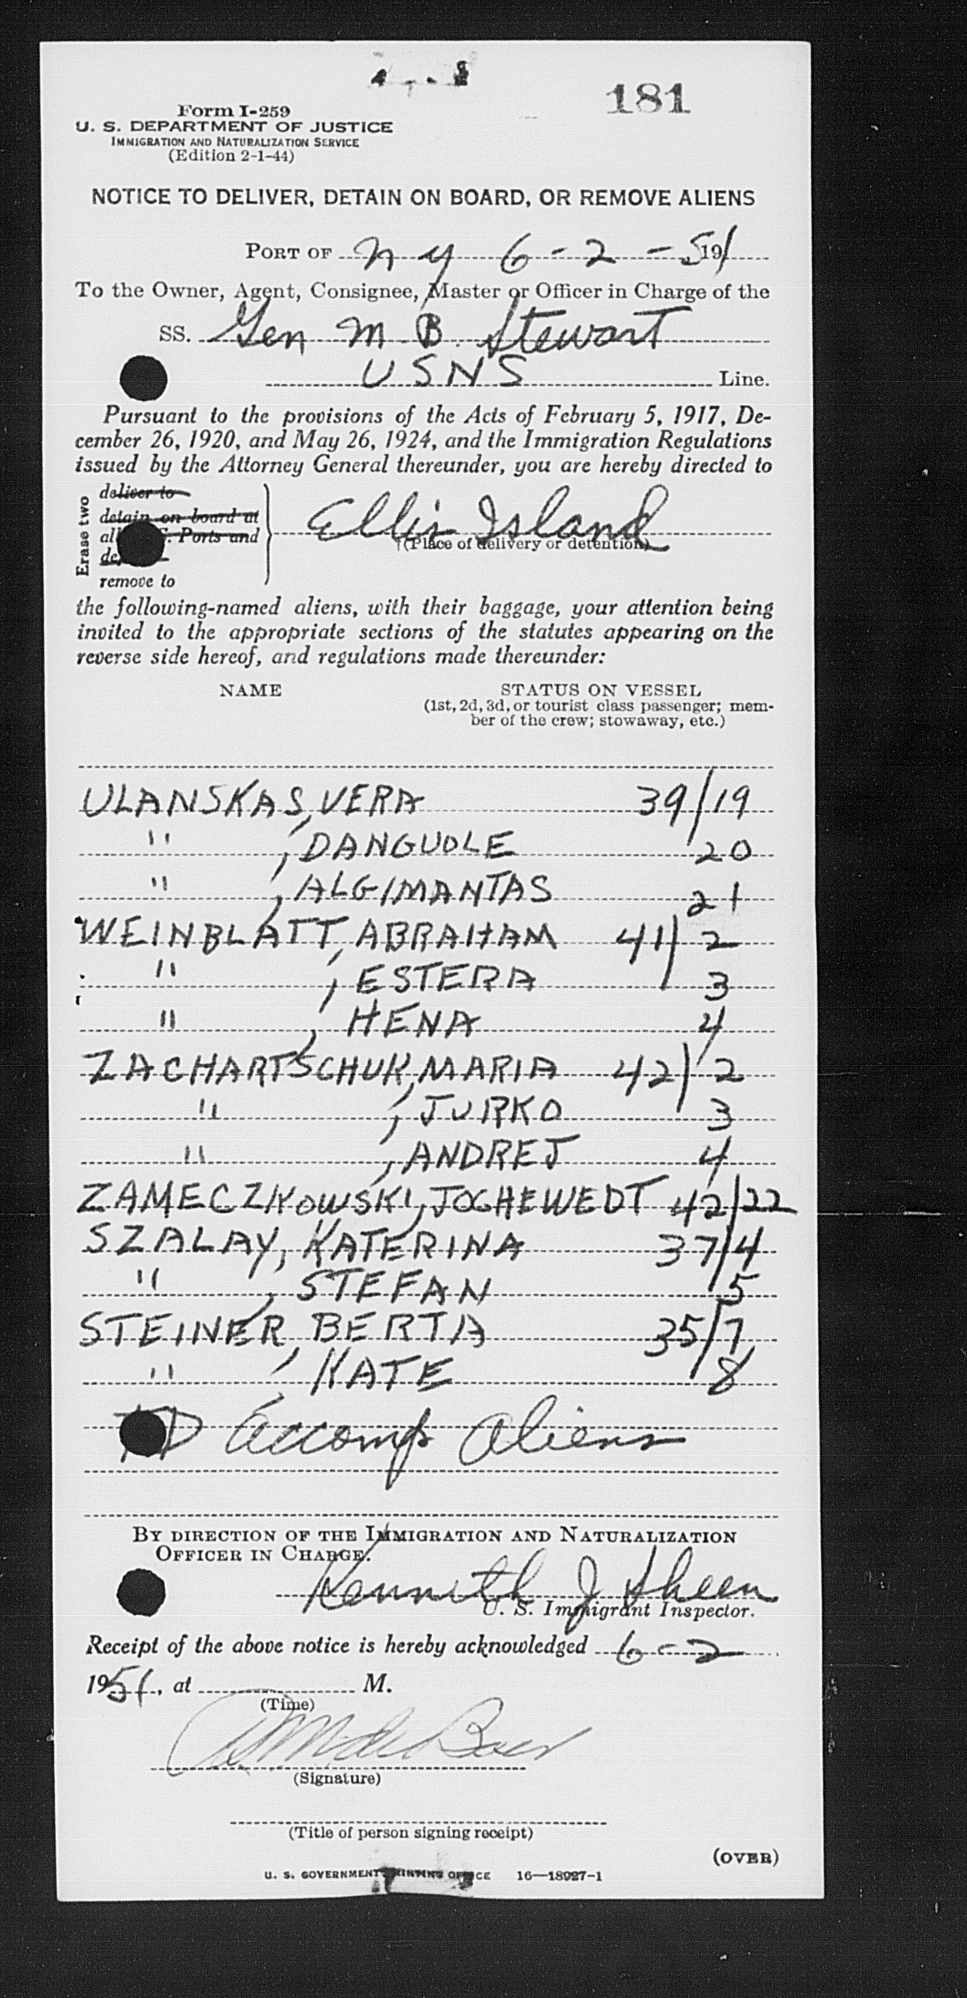 181
Form I-259
U. S. DEPARTMENT OF JUSTICE
IMMIGRATION AND NATURALIZATION SERVICE
(Edition 2-1-44)
NOTICE TO DELIVER, DETAIN ON BOARD, OR REMOVE ALIENS
PORT OF N Y 6-2-5191
To the Owner, Agent, Consignee, Master or Officer in Charge of the
SS. Gen M B Stewart
USNS Line.
Pursuant to the provisions of the Acts of February 5, 1917, De-
cember 26, 1920, and May 26, 1924, and the Immigration Regulations
issued by the Attorney General thereunder, you are hereby directed to
Erase two
deliver to
detain on board at
Ports and
remove to
Ellis Island
(Place of delivery or detention)
the following-named aliens, with their baggage, your attention being
invited to the appropriate sections of the statutes appearing on the
reverse side hereof, and regulations made thereunder:
NAME STATUS ON VESSEL
(1st, 2d, 3d, or tourist class passenger; mem-
ber of the crew; stowaway, etc.)
ULANSKAS, VERA 39/19
" , DANGUOLE 20
" , ALGIMANTAS 21
WEINBLATT, ABRAHAM 41/2
" , ESTERA 3
" , HENA 4
ZACHARTSCHUK, MARIA 42/2
" , JURKO 3
" , ANDREJ 4
ZAMECZKOWSKI, JOCHEWEDT 42/22
SZALAY, KATERINA 37/4
" , STEFAN 5
STEINER, BERTA 35/7
" , KATE 8
Accomp Aliens
BY DIRECTION OF THE IMMIGRATION AND NATURALIZATION
OFFICER IN CHARGE.
Kenneth J Sheen
U. S. Immigrant Inspector.
Receipt of the above notice is hereby acknowledged 6-2
1951, at M.
(Time)
(Signature)
(Title of person signing receipt)
(OVER)
U. S. GOVERNMENT PRINTING OFFICE 16—18927-1